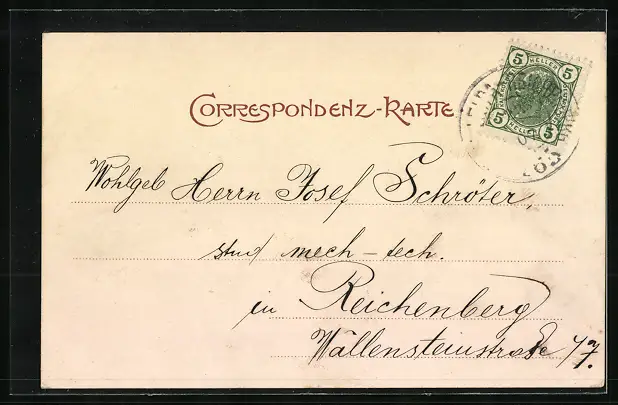 CORRESPONDENZ-KARTE
5 HELLER 5
5 HELLER 5
Wohlgeb Herrn Josef Schröter,
stud mech-tech.
in Reichenberg
Wallensteinstraße